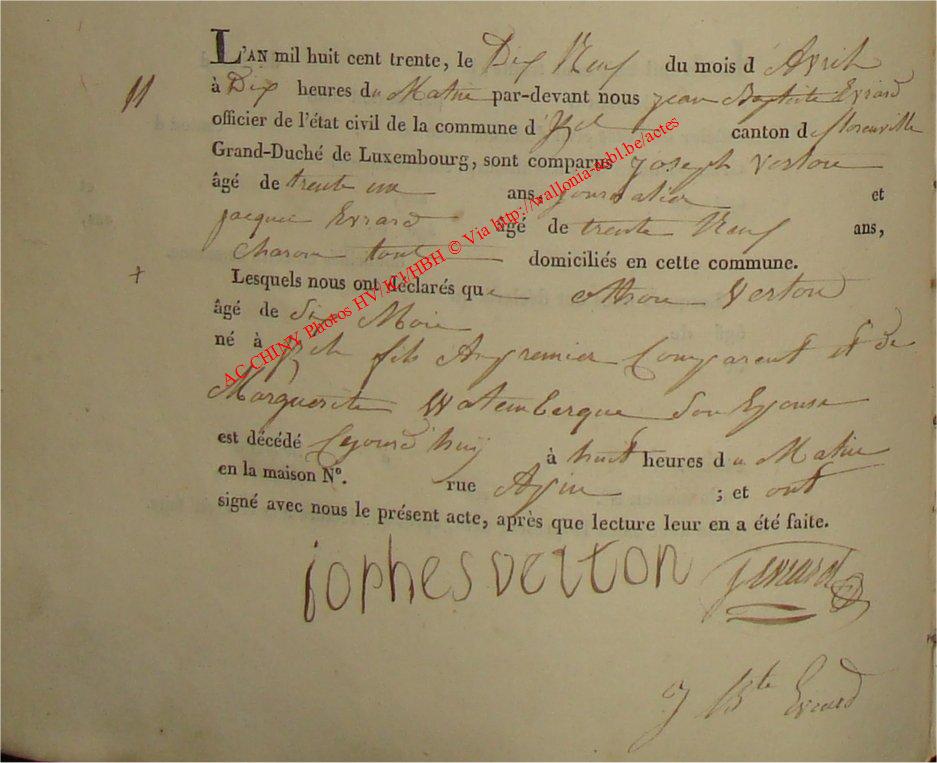 L'AN mil huit cent trente, le Dix Neuf du mois d'Avril
11 à Dix heures du Matin par-devant nous jean Baptiste Evrard
officier de l'état civil de la commune d'Izel canton de florenville
Grand-Duché de Luxembourg, sont comparus joseph verton
âgé de trente un ans, journalier et
jacque Evrard âgé de trente Neuf ans,
charon tout domiciliés en cette commune.
+ Lesquels nous ont déclarés que verton
âgé de Six Mois
né à Izel fils Au premier Comparent et de
Marguerite Watemberque Son Epouse
est décédé Cejourd'huÿ à huit heures du Matin
en la maison N°. rue ; et ont
signé avec nous le présent acte, après que lecture leur en a été faite.
jophesverton jevrard
J Bte Evrard
AC CHINY Photos HV/KJ/HBH © Via http://wallonia-asbl.be/actes